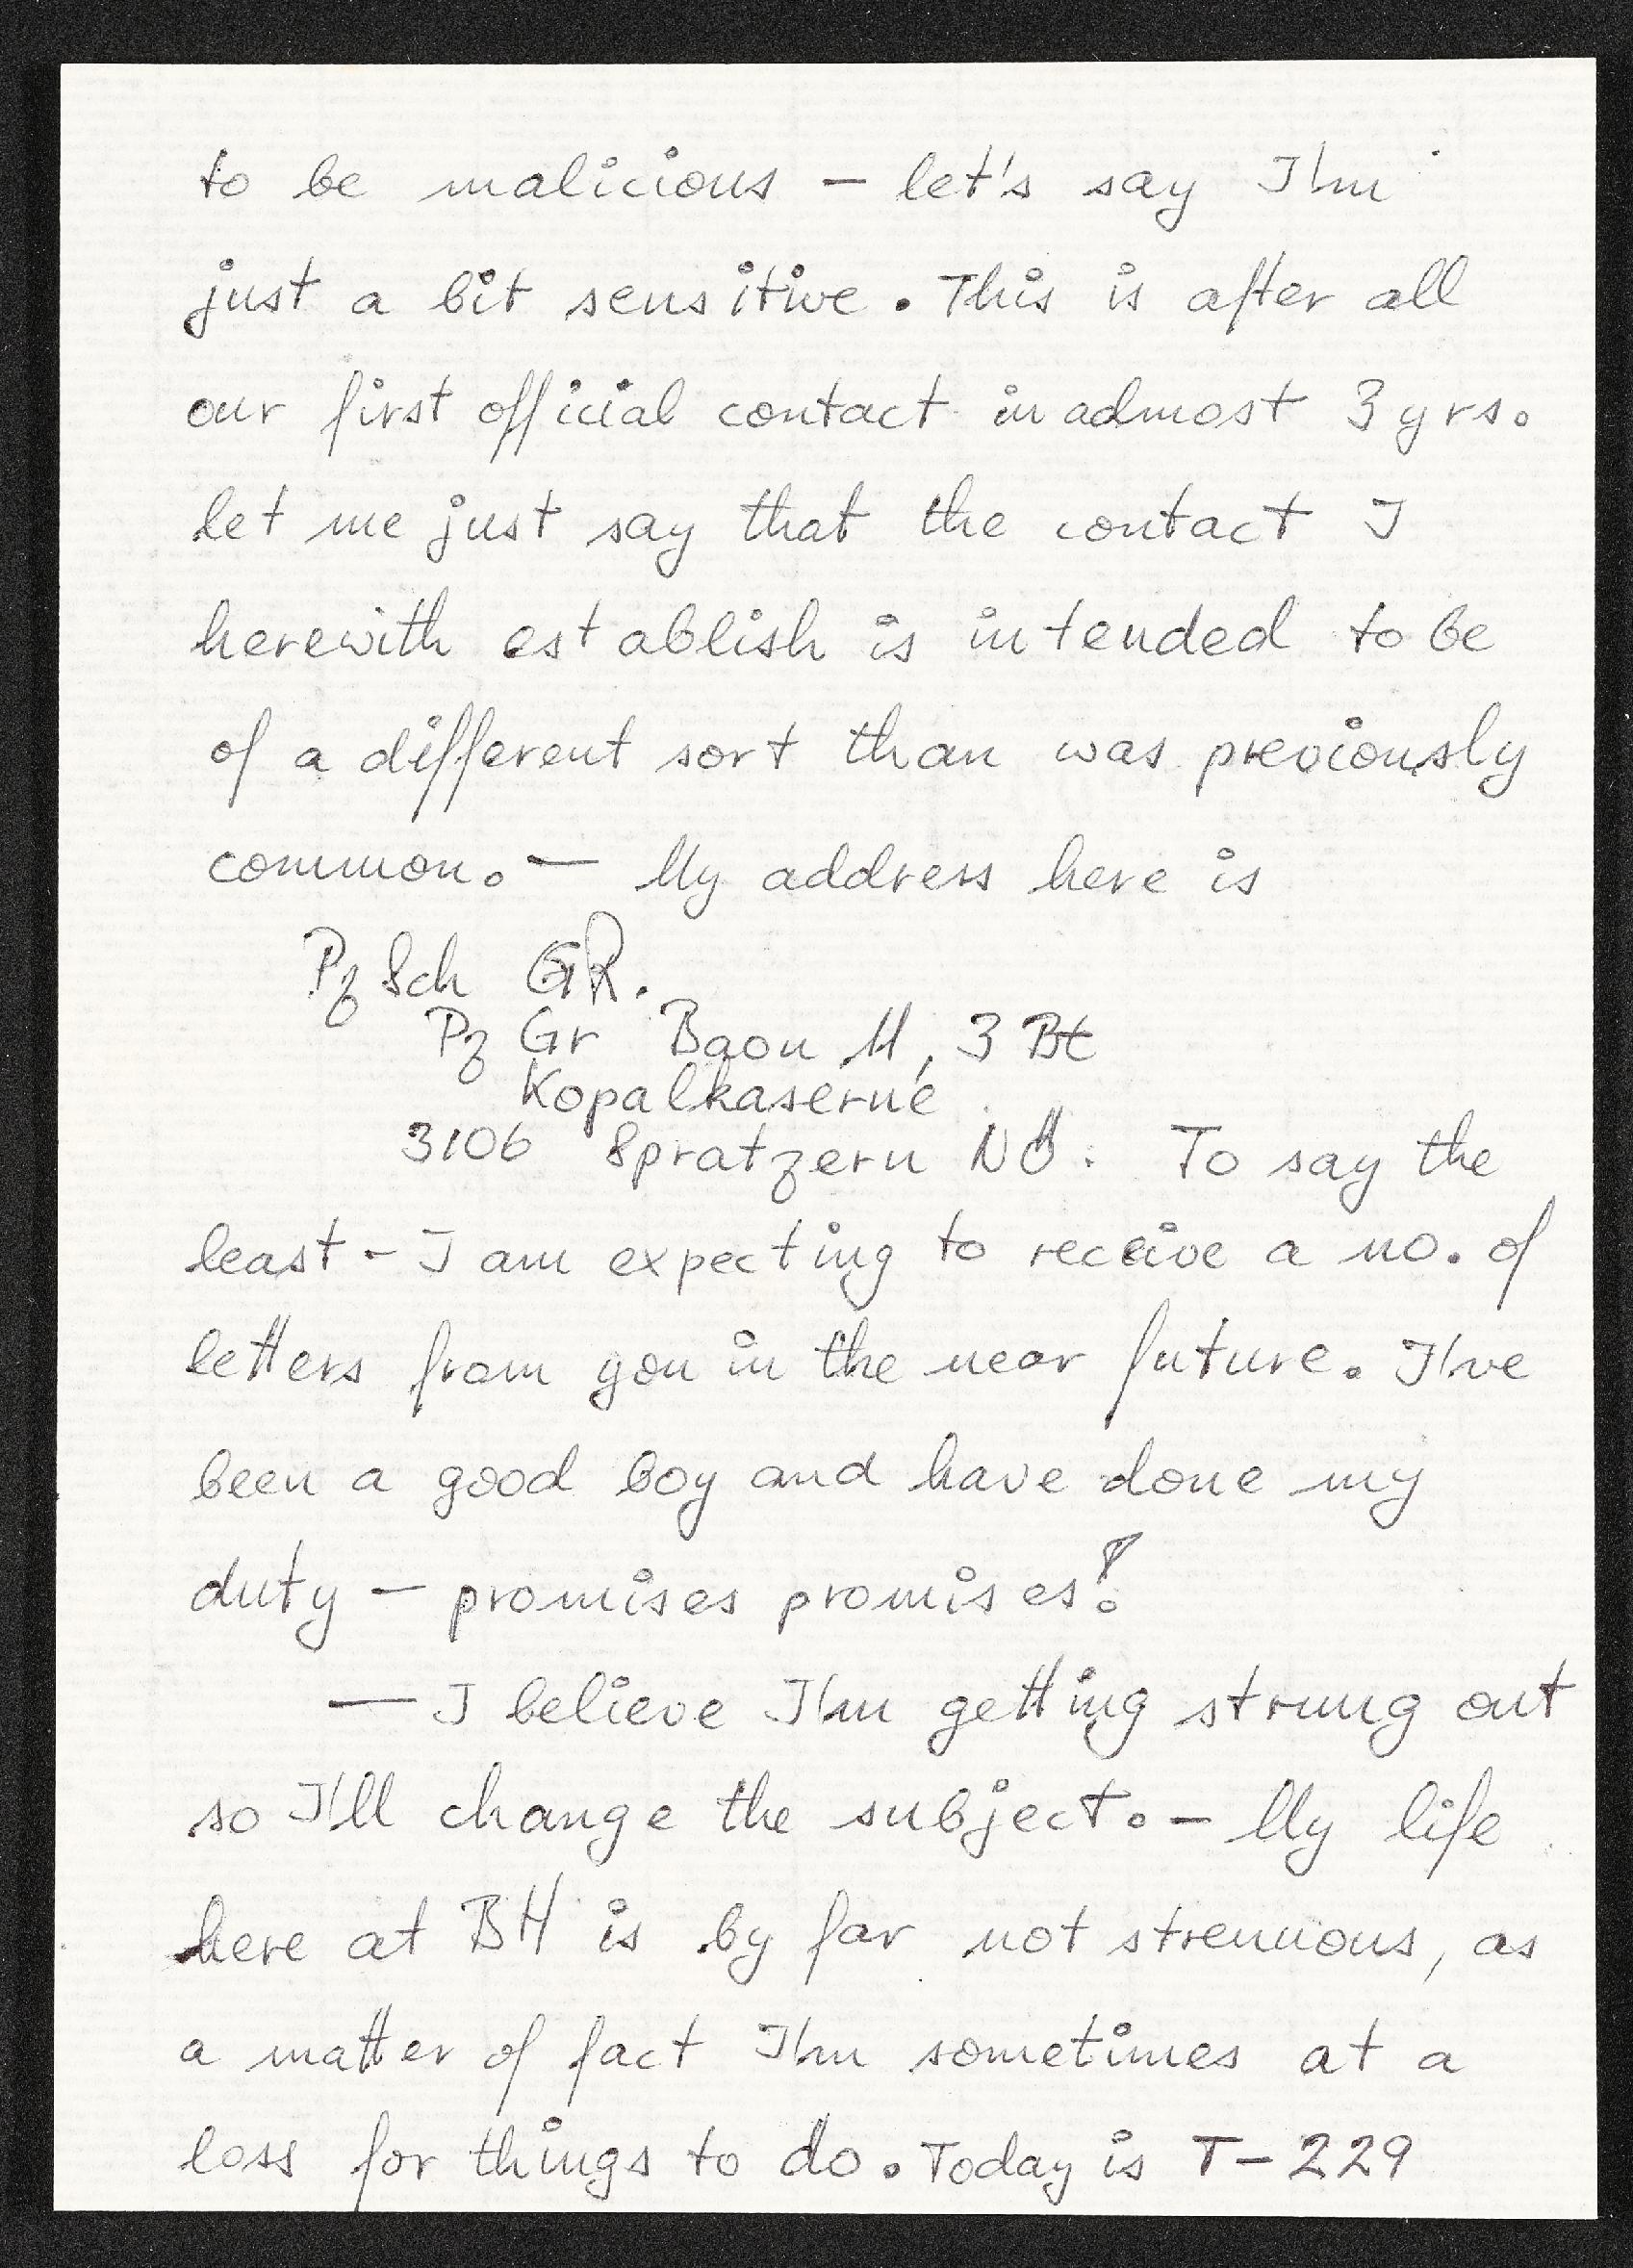 to be malicious – let's say I'm
just a bit sensitive. This is after all
our first official contact in admost 3 yrs.
let me just say that the contact I
herewith establish is intended to be
of a different sort than was previously
common. – My address here is
PzSch GR.
Pz Gr Baon 11, 3 Bt
Kopalkaserne
3106 Spratzern NÖ. To say the
least – I am expecting to receive a no. of
letters from you in the near future. I've
been a good boy and have done my
duty – promises promises!
— I believe I'm getting strung out
so I'll change the subject. – My life
here at BH is by far not strenuous, as
a matter of fact I'm sometimes at a
loss for things to do. Today is T–229